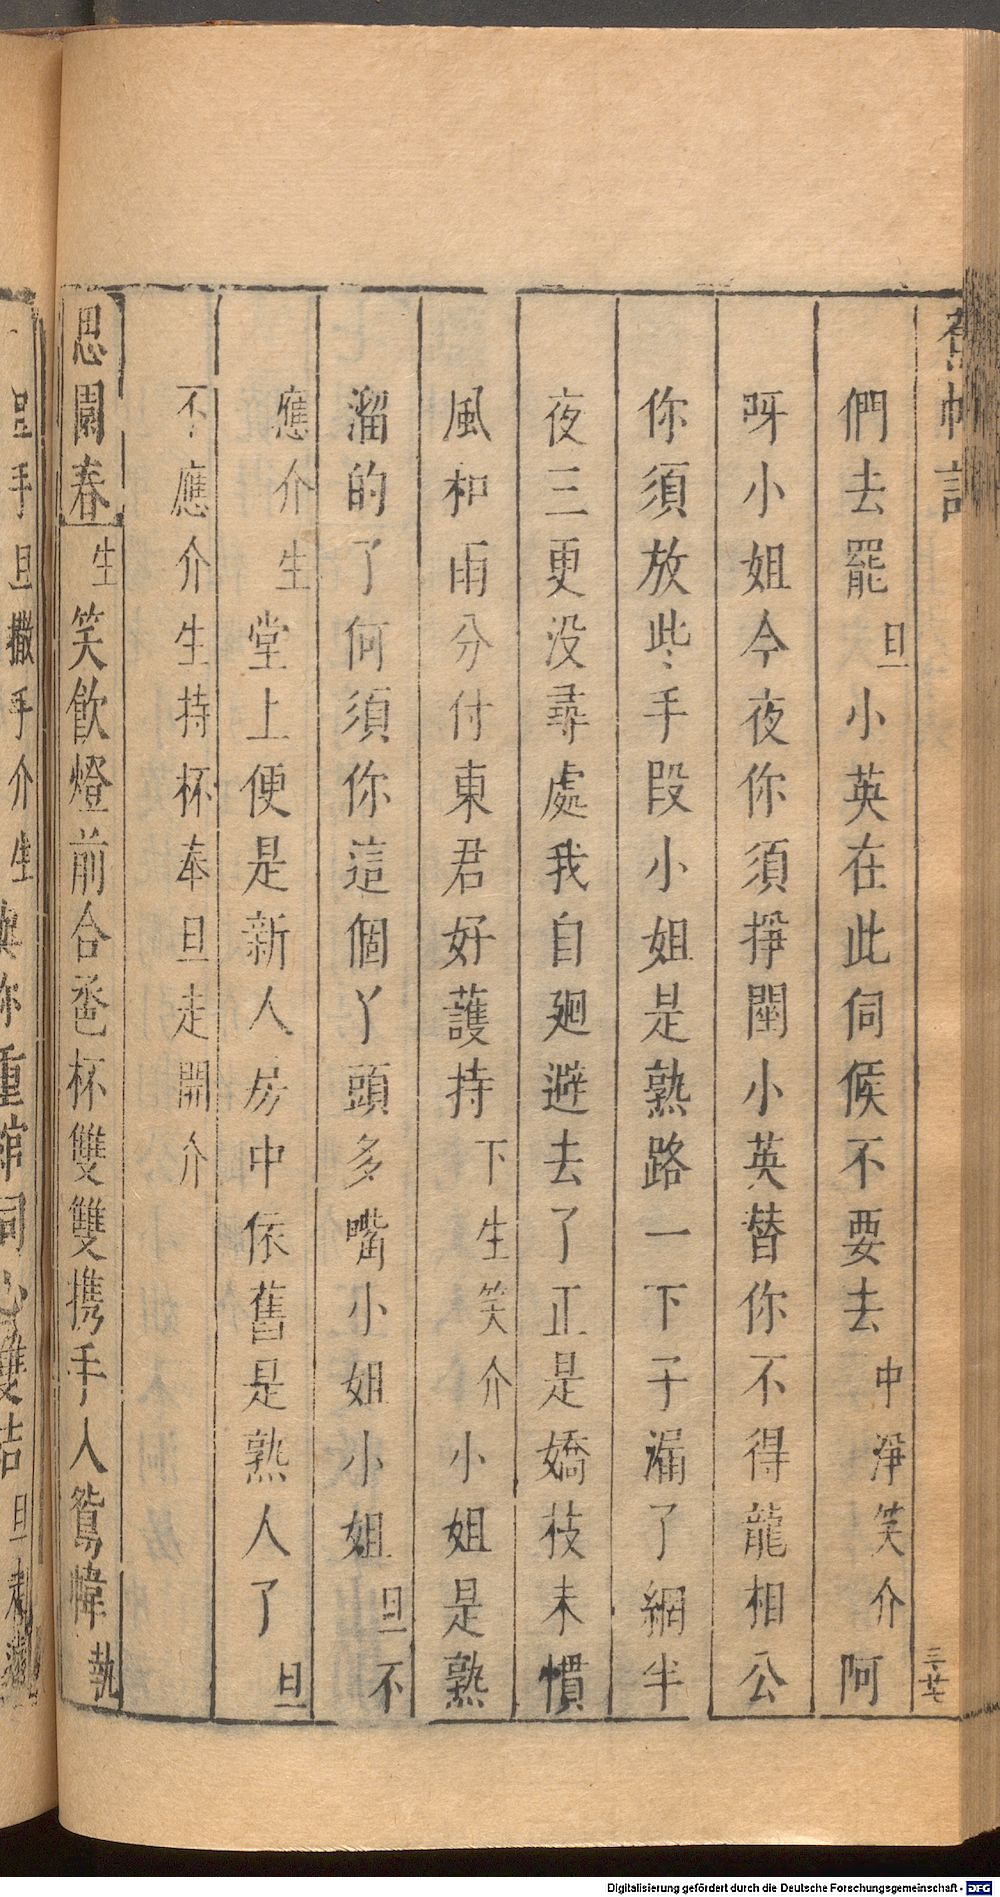 們去罷旦小英在此伺候不要去中淨笑介阿
呀小姐今夜你須掙閨小英替你不得龍相公
你須放些手段小姐是熟路一下子漏了網半
夜三更没尋處我自廻避去了正是嬌枝未慣
風和雨分付東君好護持下生笑介小姐是熟
溜的了何須你這個丫頭多嘴小姐小姐旦不
應介生堂上便是新人房中依舊是熟人了旦
不應介生持杯奉旦走開介
思園春生笑飲燈前合卺杯雙雙携手人鴛幃執
旦手旦撒手介生
三廿七
Digitalisierung gefördert durch die Deutsche Forschungsgemeinschaft - DFG